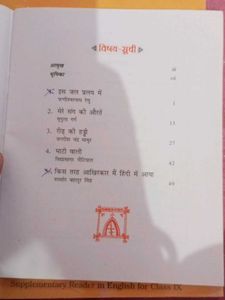 विषय-सूची
आमुख iii
भूमिका
1. इस जल प्रलय में 1
फणीश्वरनाथ रेणु
2. मेरे संग की औरतें
मृदुला गर्ग
3. रीढ़ की हड्डी
जगदीश चंद्र माथुर
4. माटी वाली 42
विद्यासागर नौटियाल
5. किस तरह आखिरकार मैं हिंदी में आया 49
शमशेर बहादुर सिंह
Supplementary Reader in English for Class IX